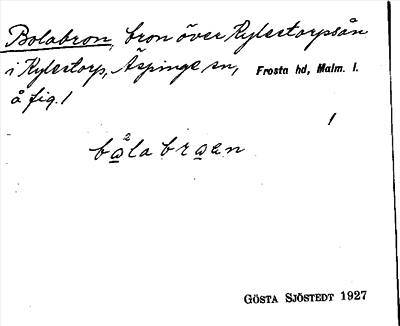 Bolabron, bron över Rylestorpsån
i Rylestorp, Äspinge sn, Frosta hd, Malm. l.
å fig. 1
1
bo̲²la bro̲en
GÖSTA SJÖSTEDT 1927